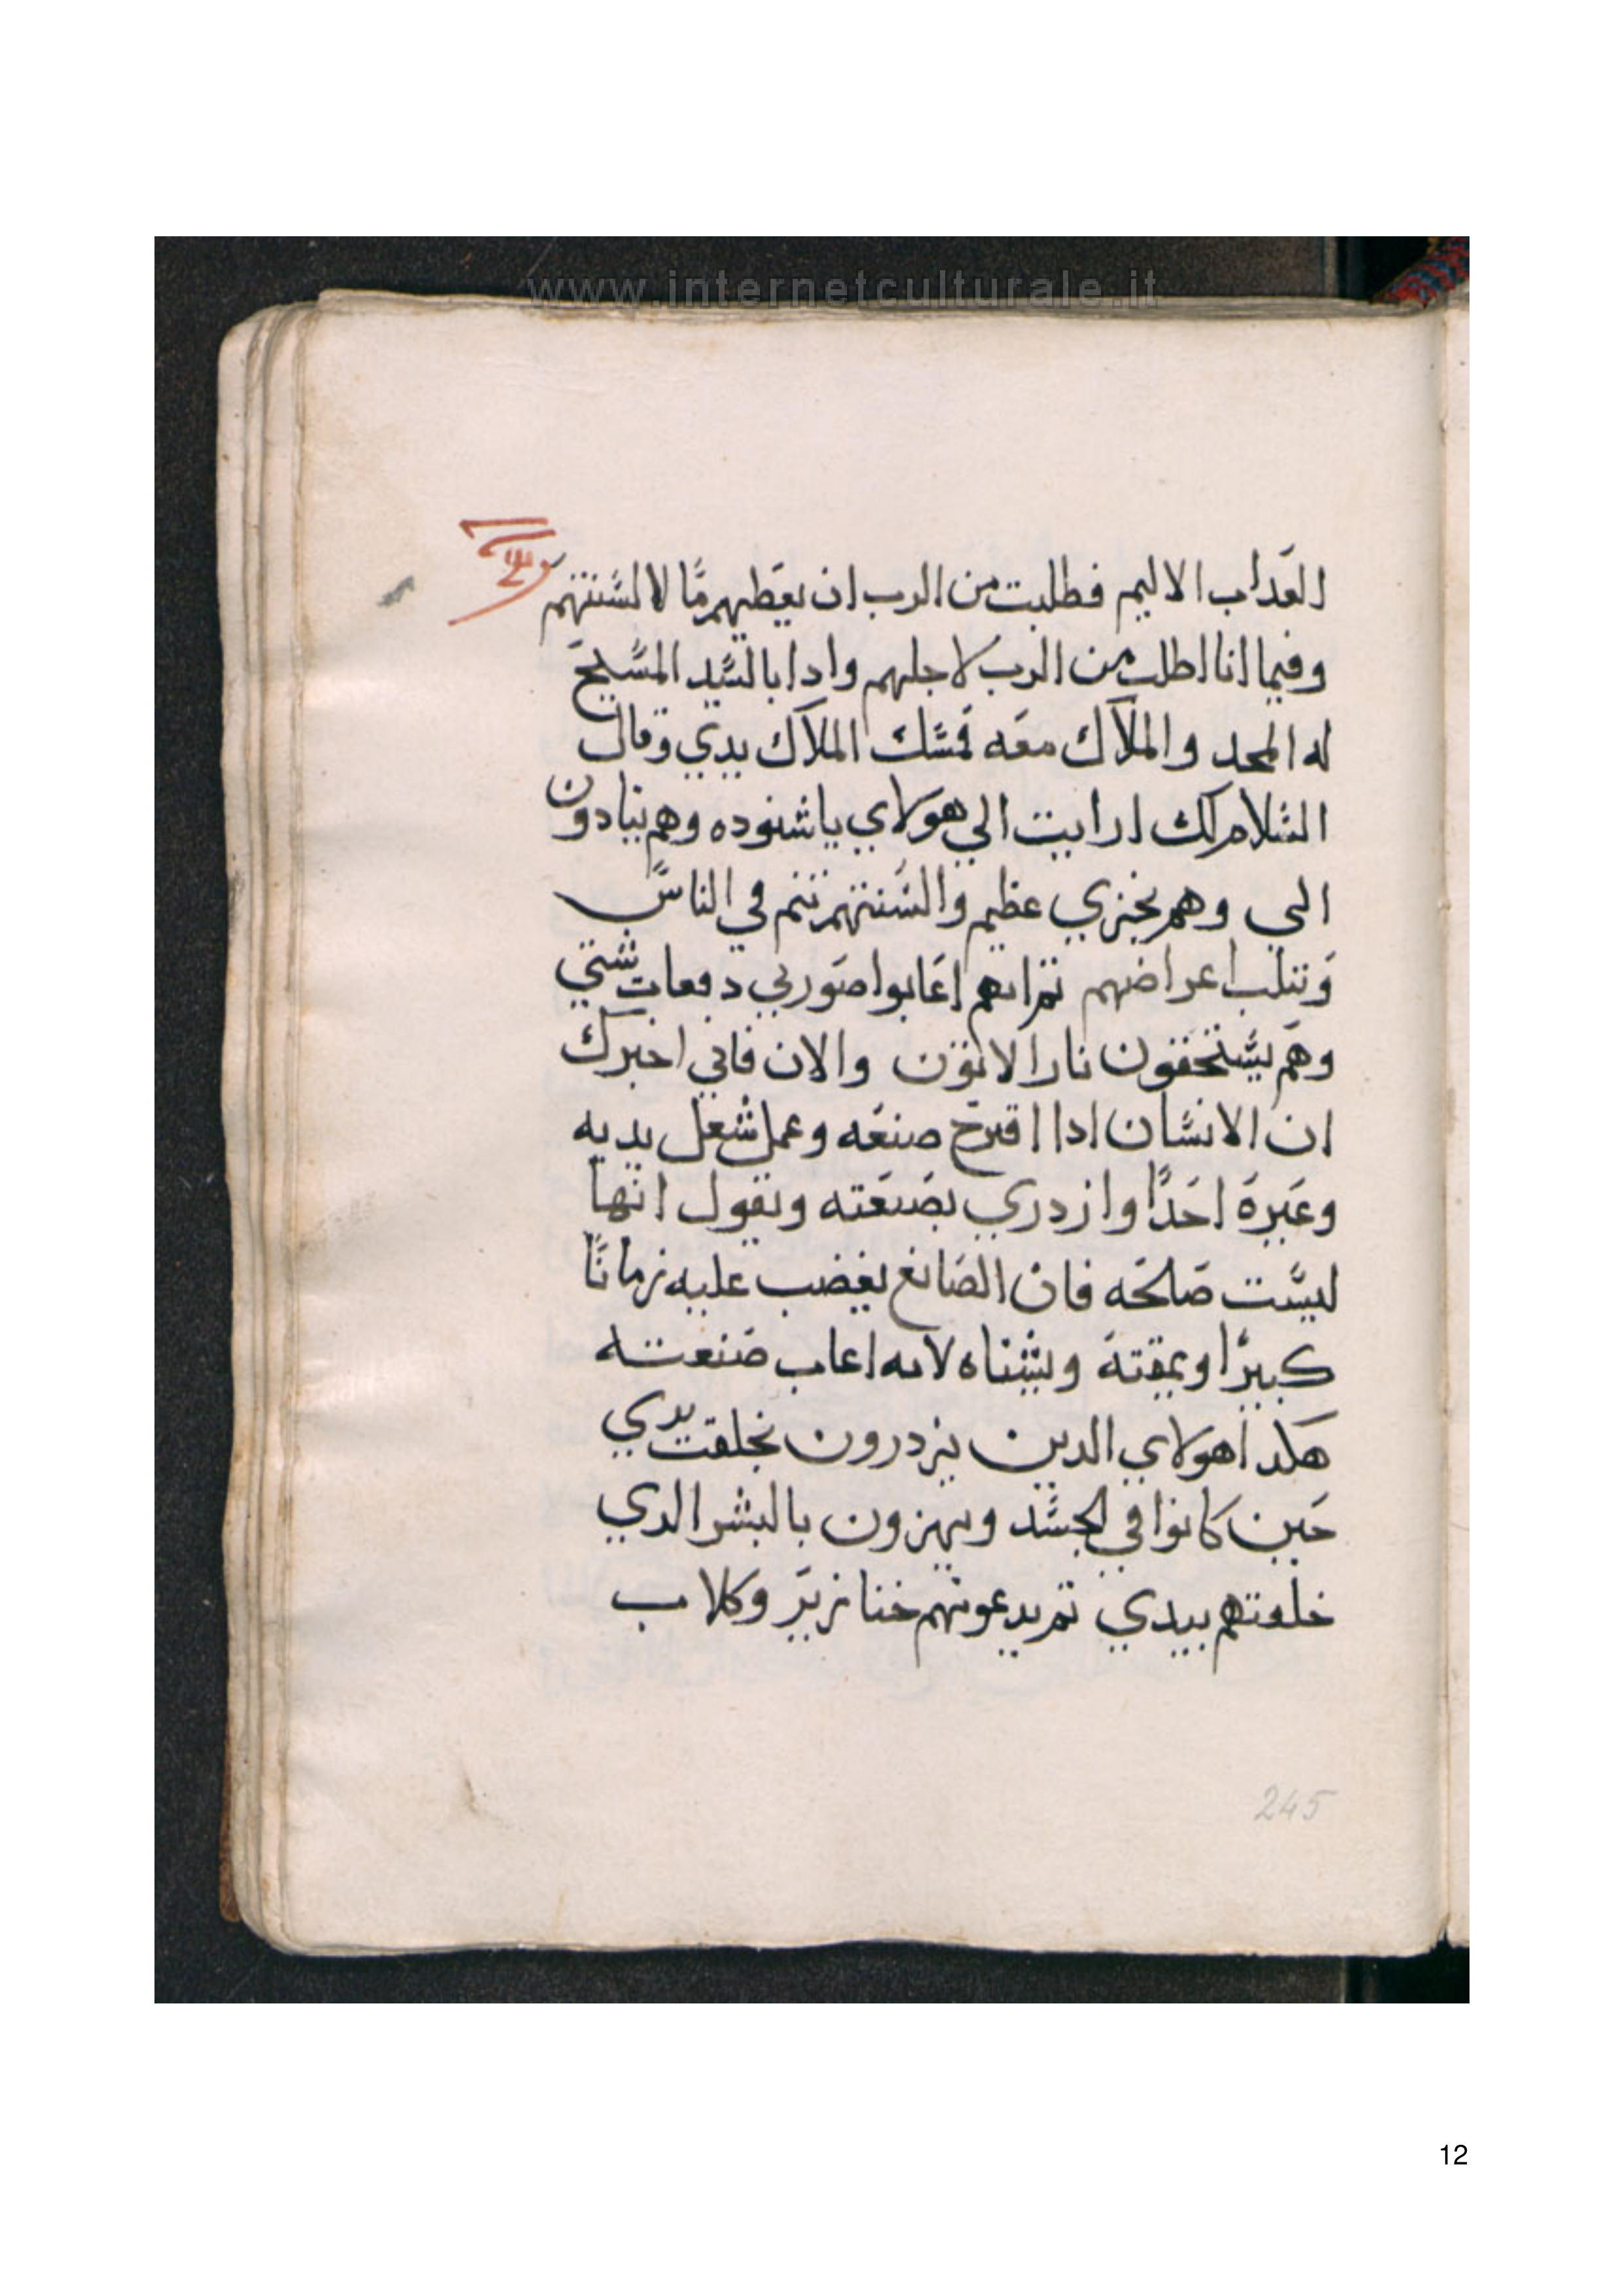 www.internetculturale.it
العداب الاليم فطلبت من الرب ان يعطيهم ما لالسنتهم
وفيما انا اطلب من الرب لاجلهم وادا بالسيد المسيح
له المجد والملاك معه فمسك الملاك يدي وقال
السلام لك ارايت الي هولاي ياشنوده وهم ينادون
الي وهم بخزي عظيم والسنتهم تنم في الناس
وتتلب اعراضهم تم انهم اعابوا صورتي دفعات شتي
وهم يستحقون نار الاتون والان فاني اخبرك
ان الانسان ادا اقترح صنعه وعمل شغل يديه
وعيره احدا وازدري بصنعته ويقول انها
ليست صالحه فان الصانع يغضب عليه زمانا
كبيرا ويمقته ويشناه لانه اعاب صنعته
هكدا هولاي الدين يزدرون بخلقت يدي
حين كانوا في الجسد ويهزون بالبشر الدي
خلقتهم بيدي تم يدعونهم خنازير وكلاب
245
12